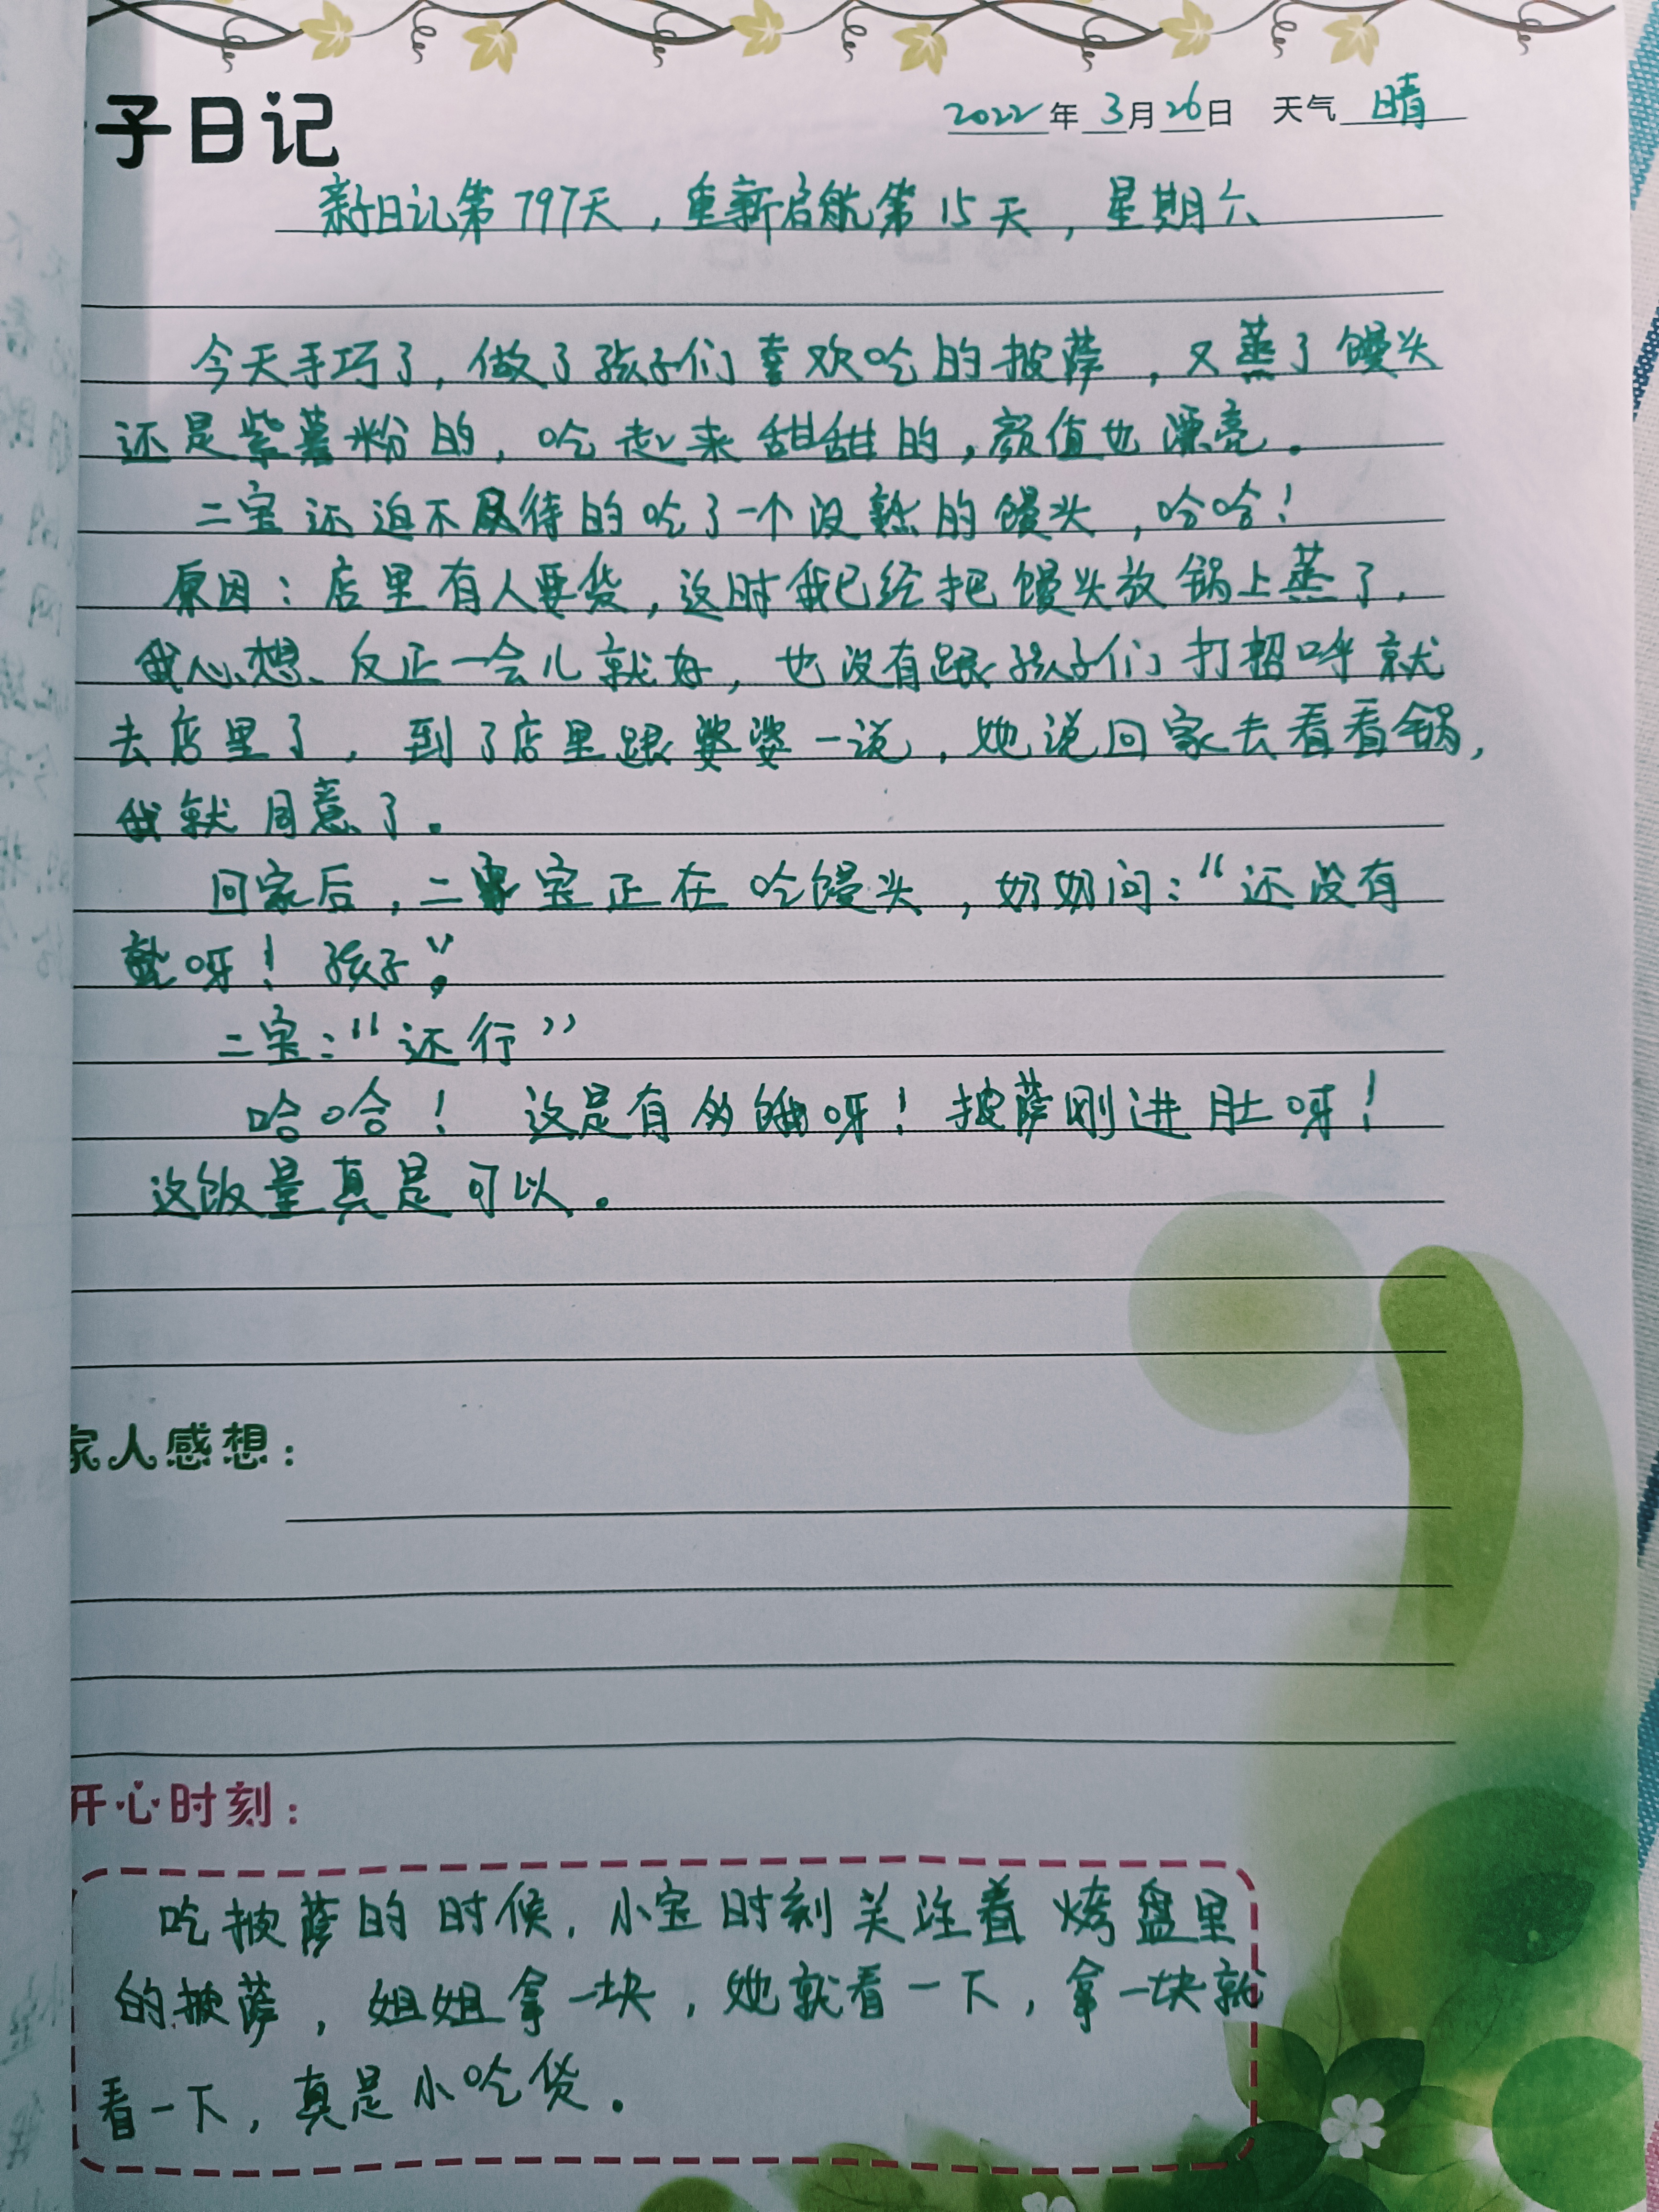 子日记
2022年3月26日 天气 晴
亲子日记第797天，重新启航第15天，星期六
今天手巧了，做了孩子们喜欢吃的披萨，又蒸了馒头
还是紫薯粉的，吃起来甜甜的，颜值也漂亮。
二宝还迫不及待的吃了一个没熟的馒头，哈哈！
原因：店里有人要货，这时我已经把馒头放锅上蒸了，
我心想、反正一会儿就好，也没有跟孩子们打招呼就
去店里了，到了店里跟婆婆一说，她说回家去看看锅，
我就同意了。
回家后，二宝正在吃馒头，奶奶问：“还没有
熟呀！孩子”。
二宝：“还行”
哈哈！这是有多饿呀！披萨刚进肚呀！
这饭量真是可以。
家人感想：
开心时刻：
吃披萨的时候，小宝时刻关注着烤盘里
的披萨，姐姐拿一块，她就看一下，拿一块就
看一下，真是小吃货。